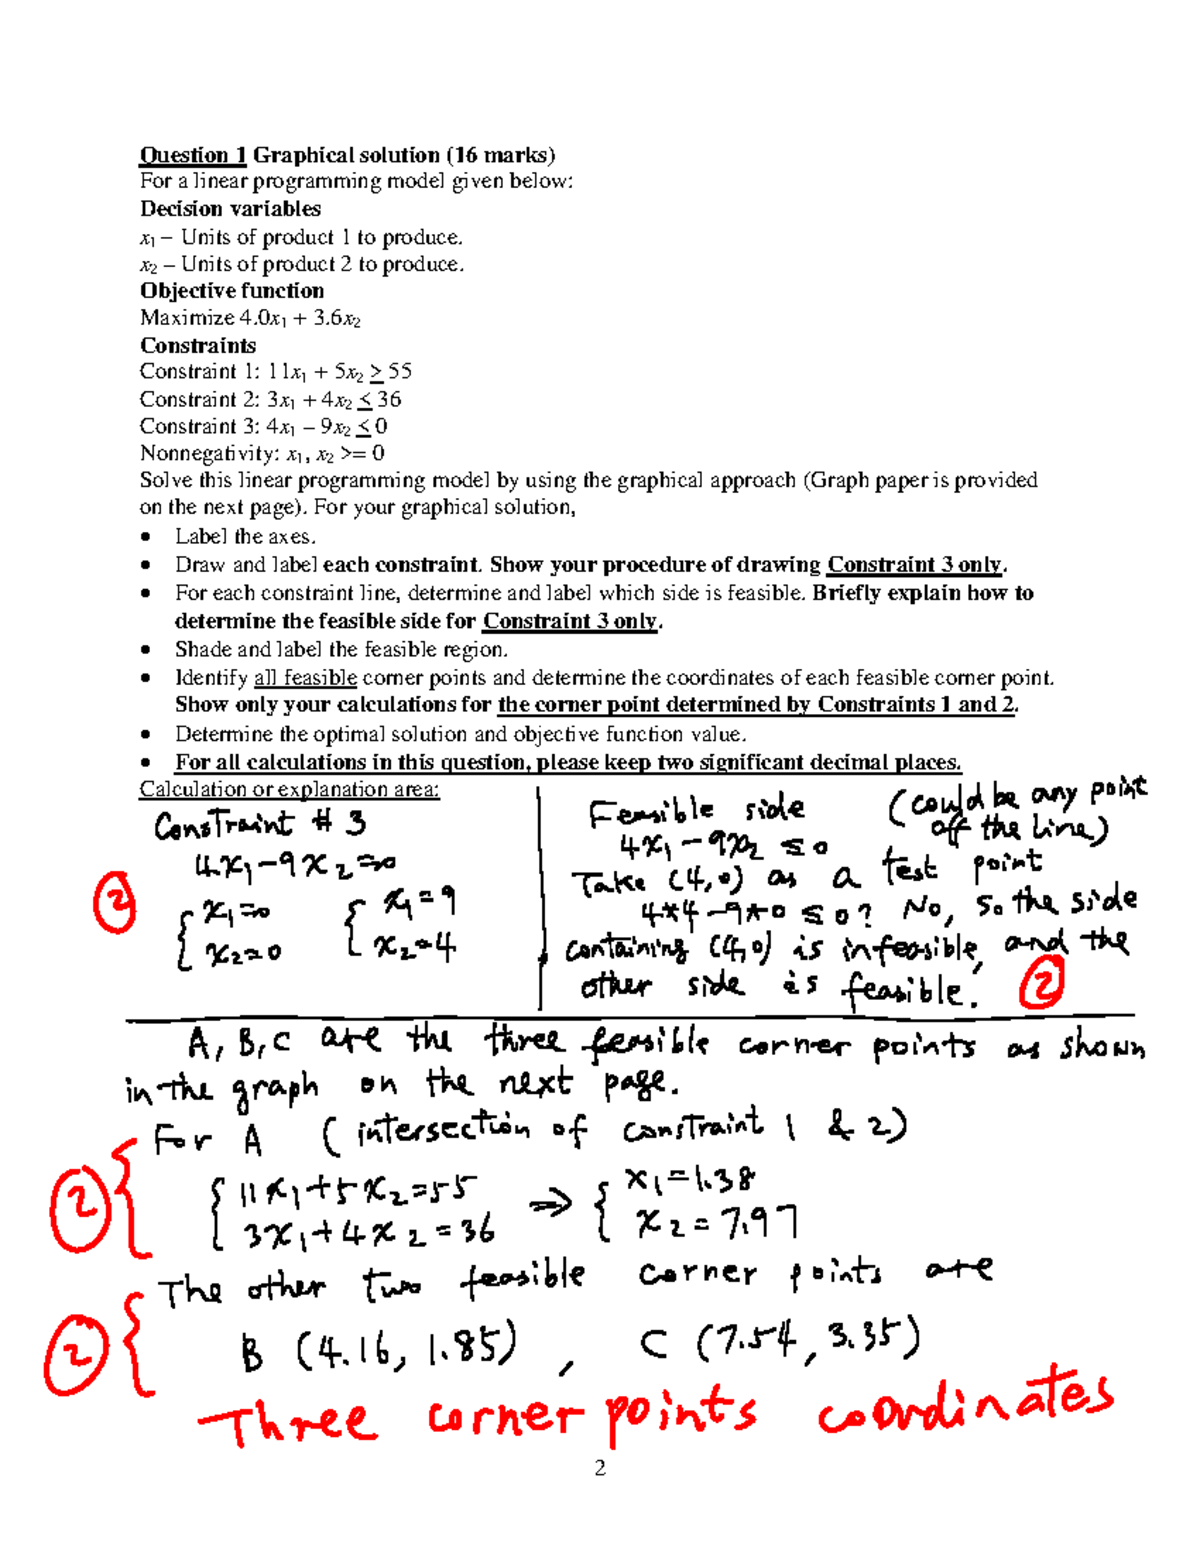 Question 1 Graphical solution (16 marks)
For a linear programming model given below:
Decision variables
x1 – Units of product 1 to produce.
x2 – Units of product 2 to produce.
Objective function
Maximize 4.0x1 + 3.6x2
Constraints
Constraint 1: 11x1 + 5x2 ≥ 55
Constraint 2: 3x1 + 4x2 ≤ 36
Constraint 3: 4x1 – 9x2 ≤ 0
Nonnegativity: x1, x2 >= 0
Solve this linear programming model by using the graphical approach (Graph paper is provided
on the next page). For your graphical solution,
• Label the axes.
• Draw and label each constraint. Show your procedure of drawing Constraint 3 only.
• For each constraint line, determine and label which side is feasible. Briefly explain how to
determine the feasible side for Constraint 3 only.
• Shade and label the feasible region.
• Identify all feasible corner points and determine the coordinates of each feasible corner point.
Show only your calculations for the corner point determined by Constraints 1 and 2.
• Determine the optimal solution and objective function value.
• For all calculations in this question, please keep two significant decimal places.
Calculation or explanation area:
Constraint # 3
4x1-9x2=0
2
{ x1=0 { x1=9
x2=0 x2=4
Feasible side (could be any point
off the line)
4x1-9x2 ≤ 0
Take (4,0) as a test point
4*4-9*0 ≤ 0? No, so the side
containing (4,0) is infeasible, and the
other side is feasible.
2
A, B, C are the three feasible corner points as shown
in the graph on the next page.
For A (intersection of constraint 1 & 2)
2 { 11x1+5x2=55 => { x1=1.38
3x1+4x2=36 x2=7.97
The other two feasible corner points are
2 B (4.16, 1.85), C (7.54, 3.35)
Three corner points coordinates
2